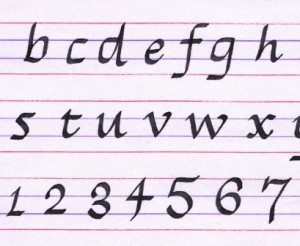 b c d e f g h
s t u v w x
1 2 3 4 5 6 7